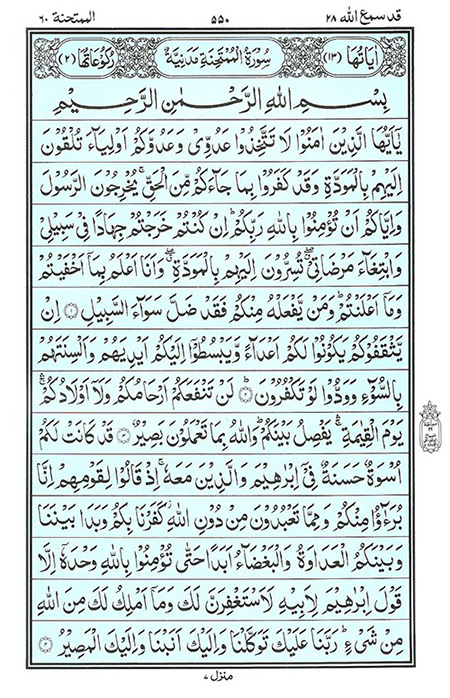 قد سمع الله ٢٨
٥٥٠
الممتحنة ٦٠
اٰيَاتُهَا (١٣)
سُوْرَةُ الْمُمْتَحِنَةِ مَدَنِيَّةٌ
رُكُوْعَاتُهَا (٢)
بِسْمِ اللّٰهِ الرَّحْمٰنِ الرَّحِيْمِ
يٰۤاَيُّهَا الَّذِيْنَ اٰمَنُوْا لَا تَتَّخِذُوْا عَدُوِّيْ وَعَدُوَّكُمْ اَوْلِيَآءَ تُلْقُوْنَ
اِلَيْهِمْ بِالْمَوَدَّةِ وَقَدْ كَفَرُوْا بِمَا جَآءَكُمْ مِّنَ الْحَقِّ ۚ يُخْرِجُوْنَ الرَّسُوْلَ
وَاِيَّاكُمْ اَنْ تُؤْمِنُوْا بِاللّٰهِ رَبِّكُمْ ؕ اِنْ كُنْتُمْ خَرَجْتُمْ جِهَادًا فِيْ سَبِيْلِيْ
وَابْتِغَآءَ مَرْضَاتِيْ تُسِرُّوْنَ اِلَيْهِمْ بِالْمَوَدَّةِ وَاَنَا اَعْلَمُ بِمَاۤ اَخْفَيْتُمْ
وَمَاۤ اَعْلَنْتُمْ ؕ وَمَنْ يَّفْعَلْهُ مِنْكُمْ فَقَدْ ضَلَّ سَوَآءَ السَّبِيْلِ ١ اِنْ
يَّثْقَفُوْكُمْ يَكُوْنُوْا لَكُمْ اَعْدَآءً وَّيَبْسُطُوْۤا اِلَيْكُمْ اَيْدِيَهُمْ وَاَلْسِنَتَهُمْ
بِالسُّوْٓءِ وَوَدُّوْا لَوْ تَكْفُرُوْنَ ؕ ٢ لَنْ تَنْفَعَكُمْ اَرْحَامُكُمْ وَلَاۤ اَوْلَادُكُمْ ۚ
يَوْمَ الْقِيٰمَةِ ۚ يَفْصِلُ بَيْنَكُمْ ؕ وَاللّٰهُ بِمَا تَعْمَلُوْنَ بَصِيْرٌ ٣ قَدْ كَانَتْ لَكُمْ
اُسْوَةٌ حَسَنَةٌ فِيْۤ اِبْرٰهِيْمَ وَالَّذِيْنَ مَعَهٗ ۚ اِذْ قَالُوْا لِقَوْمِهِمْ اِنَّا
بُرَءٰٓؤُا مِنْكُمْ وَمِمَّا تَعْبُدُوْنَ مِنْ دُوْنِ اللّٰهِ ؗ كَفَرْنَا بِكُمْ وَبَدَا بَيْنَنَا
وَبَيْنَكُمُ الْعَدَاوَةُ وَالْبَغْضَآءُ اَبَدًا حَتّٰى تُؤْمِنُوْا بِاللّٰهِ وَحْدَهٗۤ اِلَّا
قَوْلَ اِبْرٰهِيْمَ لِاَبِيْهِ لَاَسْتَغْفِرَنَّ لَكَ وَمَاۤ اَمْلِكُ لَكَ مِنَ اللّٰهِ
مِنْ شَيْءٍ ؕ رَبَّنَا عَلَيْكَ تَوَكَّلْنَا وَاِلَيْكَ اَنَبْنَا وَاِلَيْكَ الْمَصِيْرُ ٤
منزل ٧